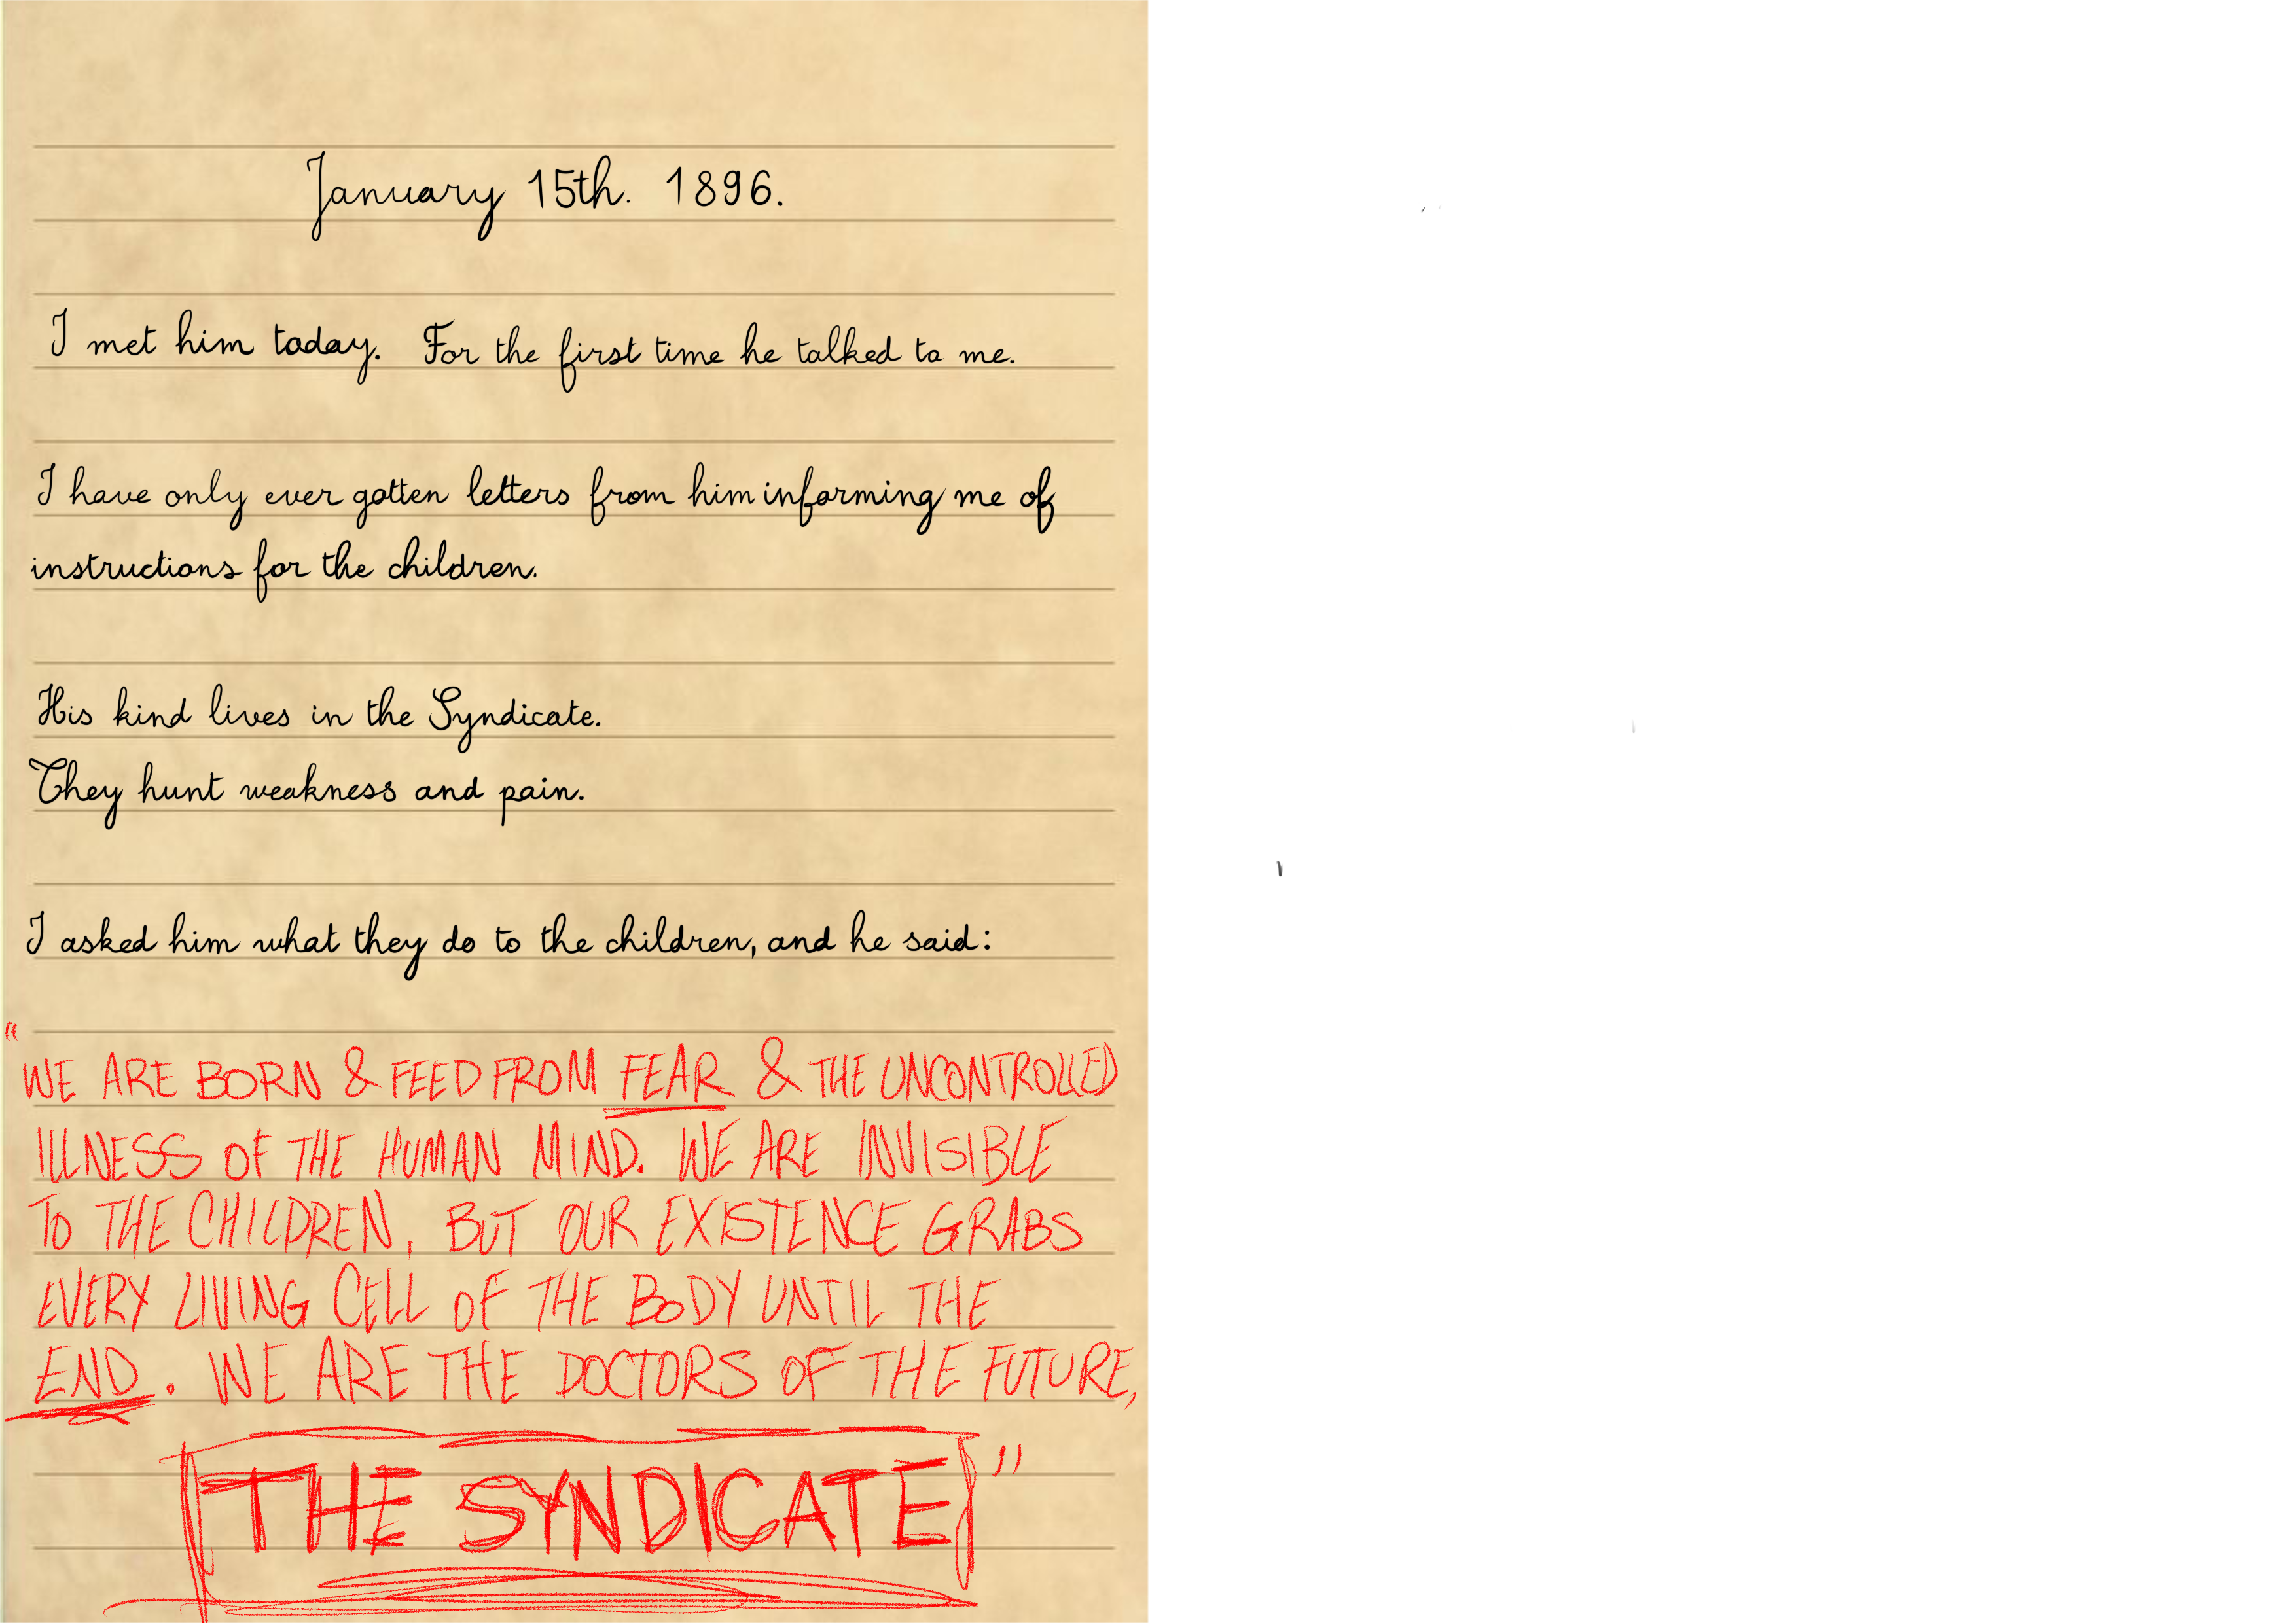 January 15th. 1896.
I met him today. For the first time he talked to me.
I have only ever gotten letters from him informing me of
instructions for the children.
His kind lives in the Syndicate.
They hunt weakness and pain.
I asked him what they do to the children, and he said:
"WE ARE BORN & FEED FROM FEAR & THE UNCONTROLLED
ILLNESS OF THE HUMAN MIND. WE ARE INVISIBLE
TO THE CHILDREN, BUT OUR EXISTENCE GRABS
EVERY LIVING CELL OF THE BODY UNTIL THE
END. WE ARE THE DOCTORS OF THE FUTURE,
THE SYNDICATE"